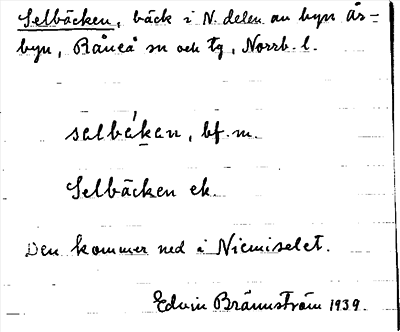 Selbäcken, bäck i N. delen av byn Ås-
byn, Råneå sn och tg, Norrb. l.
salbäkan, bf. m.
Selbäcken ek.
Den kommer ned i Niemiselet.
Edvin Brännström 1939.